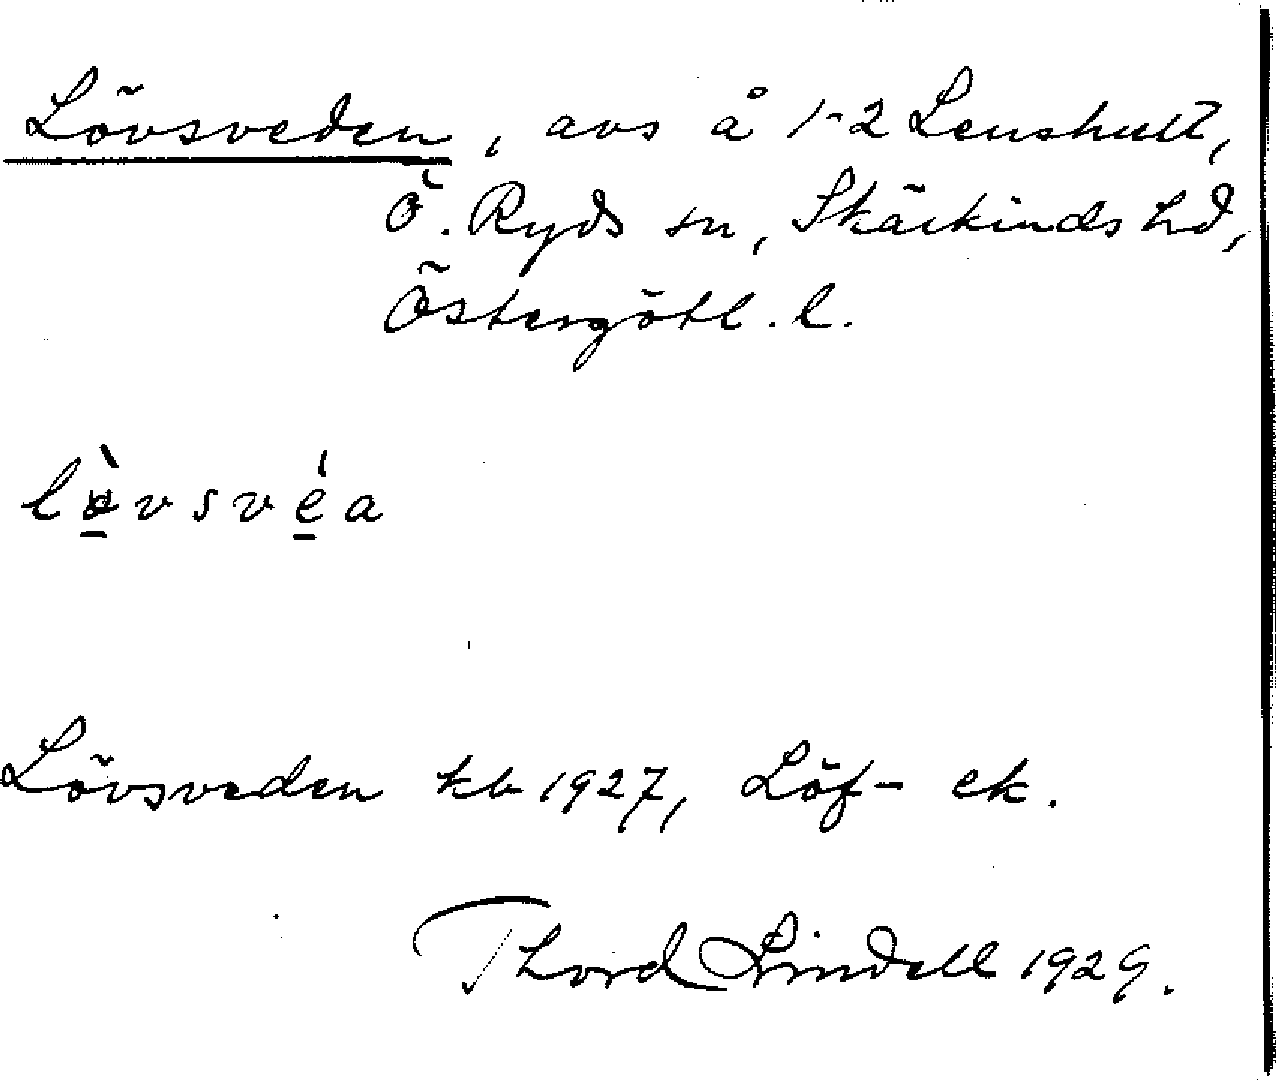 Lövsveden, avs å 1-2 Lenshult,
Ö. Ryds sn, Skärkinds hd,
Östergötl. l.
lö̀vsvéa
Lövsveden kb 1927, Löf- ek.
Thord Lindell 1929.